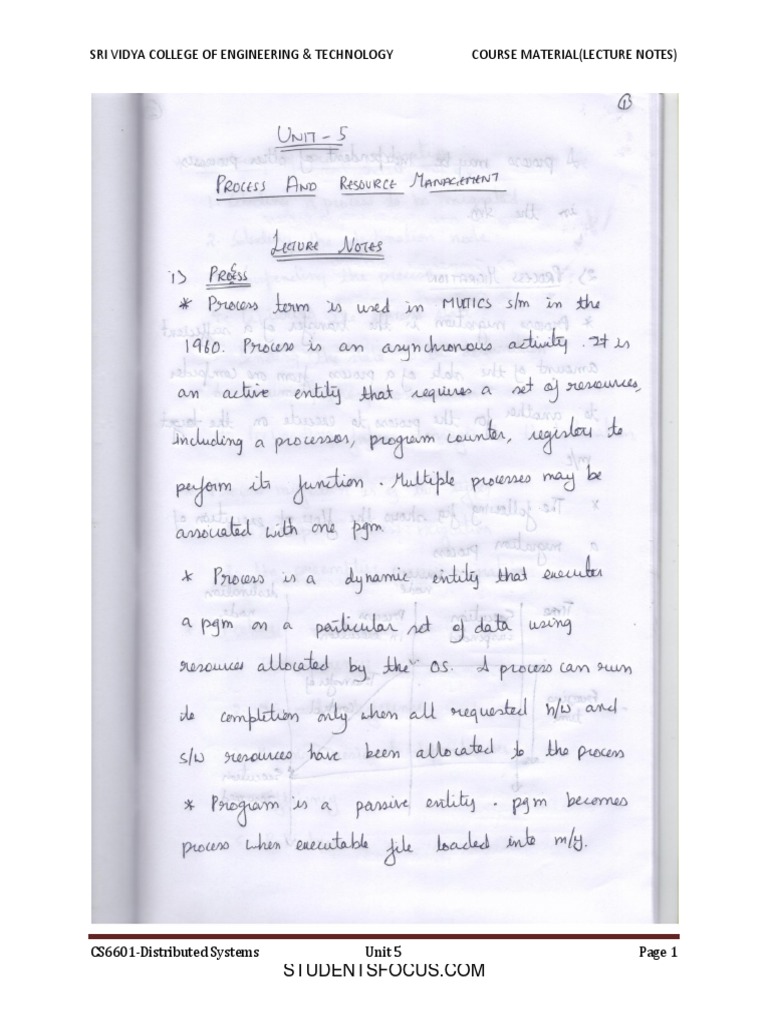 SRI VIDYA COLLEGE OF ENGINEERING & TECHNOLOGY COURSE MATERIAL(LECTURE NOTES)
1
UNIT - 5
PROCESS AND RESOURCE MANAGEMENT
LECTURE NOTES
1) PROCESS
* Process term is used in MULTICS s/m in the
1960. Process is an asynchronous activity. It is
an active entity that requires a set of resources,
including a processor, program counter, registers to
perform its function. Multiple processes may be
associated with one pgm
* Process is a dynamic entity that executes
a pgm on a particular set of data using
resources allocated by the OS. A process can run
to completion only when all requested h/w and
s/w resources have been allocated to the process
* Program is a passive entity. pgm becomes
process when executable file loaded into m/y.
CS6601-Distributed Systems Unit 5 Page 1
STUDENTSFOCUS.COM